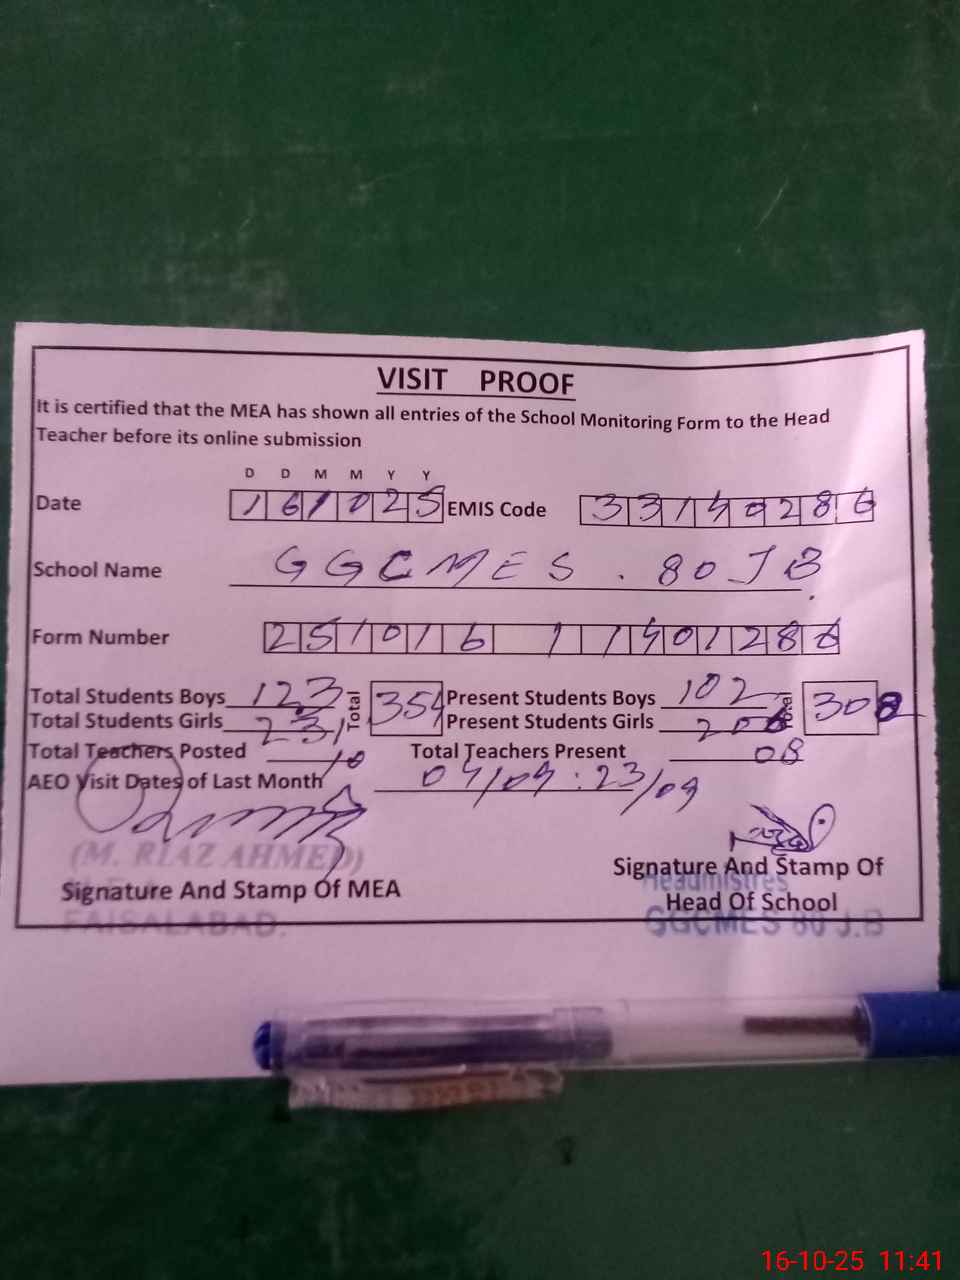 VISIT PROOF
It is certified that the MEA has shown all entries of the School Monitoring Form to the Head
Teacher before its online submission
D D M M Y Y
Date 161025 EMIS Code 33140286
School Name GGCMES . 80 JB
Form Number 251016 11401286
Total Students Boys 123 Total 354 Present Students Boys 102 Total 308
Total Students Girls 231 Present Students Girls 206
Total Teachers Posted 10 Total Teachers Present 08
AEO Visit Dates of Last Month 04/09 : 23/09
(M. RIAZ AHMED)
Signature And Stamp Of MEA
FAISALABAD.
Signature And Stamp Of
Headmistres
Head Of School
GGCMES 80 J.B
16-10-25 11:41